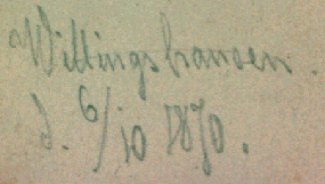 Willingshausen.
d. 6/10 1870.